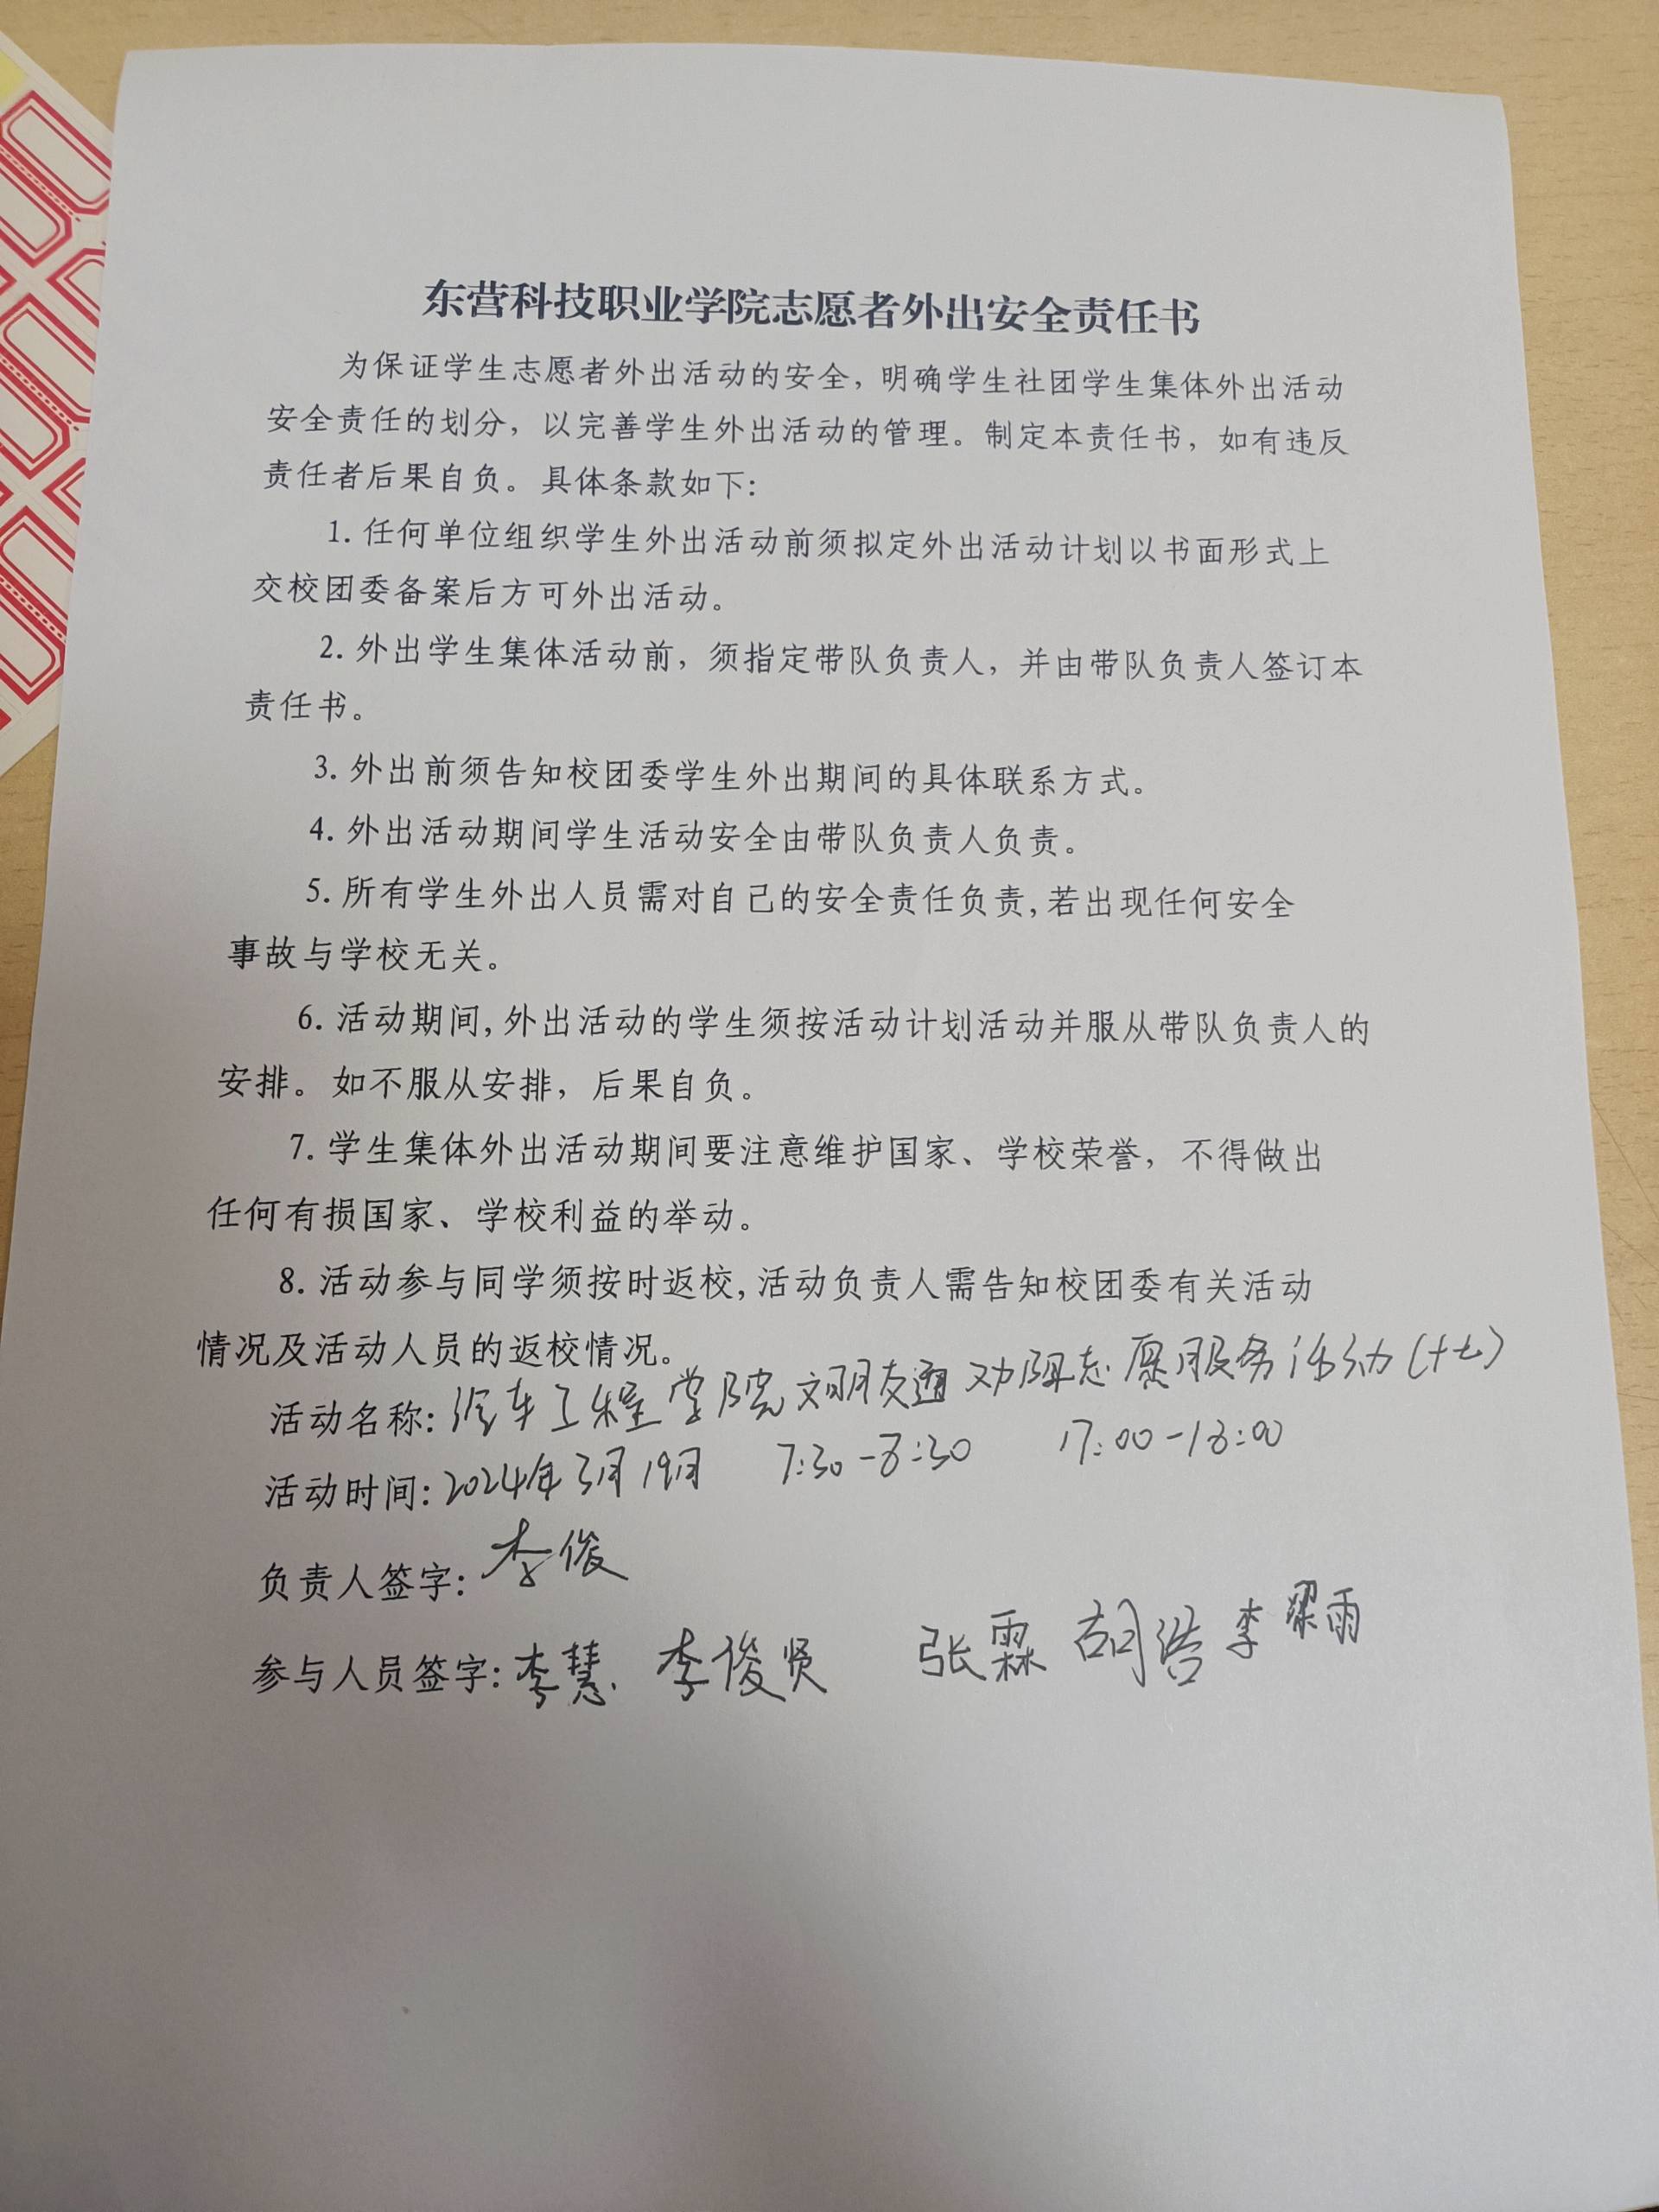 东营科技职业学院志愿者外出安全责任书
为保证学生志愿者外出活动的安全，明确学生社团学生集体外出活动
安全责任的划分，以完善学生外出活动的管理。制定本责任书，如有违反
责任者后果自负。具体条款如下：
1. 任何单位组织学生外出活动前须拟定外出活动计划以书面形式上
交校团委备案后方可外出活动。
2. 外出学生集体活动前，须指定带队负责人，并由带队负责人签订本
责任书。
3. 外出前须告知校团委学生外出期间的具体联系方式。
4. 外出活动期间学生活动安全由带队负责人负责。
5. 所有学生外出人员需对自己的安全责任负责,若出现任何安全
事故与学校无关。
6. 活动期间,外出活动的学生须按活动计划活动并服从带队负责人的
安排。如不服从安排，后果自负。
7. 学生集体外出活动期间要注意维护国家、学校荣誉，不得做出
任何有损国家、学校利益的举动。
8. 活动参与同学须按时返校,活动负责人需告知校团委有关活动
情况及活动人员的返校情况。
活动名称: 汽车工程学院文明交通劝阻志愿服务活动(十七)
活动时间: 2024年3月19日 7:30-8:30 17:00-18:00
负责人签字: 李俊
参与人员签字: 李慧 李俊贤 张霖 胡浩 李翠雨